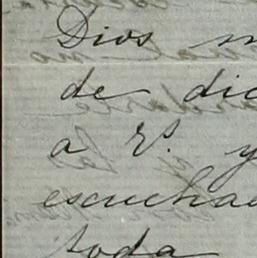 Dios m
de dic
a Vs. y
escucha
toda